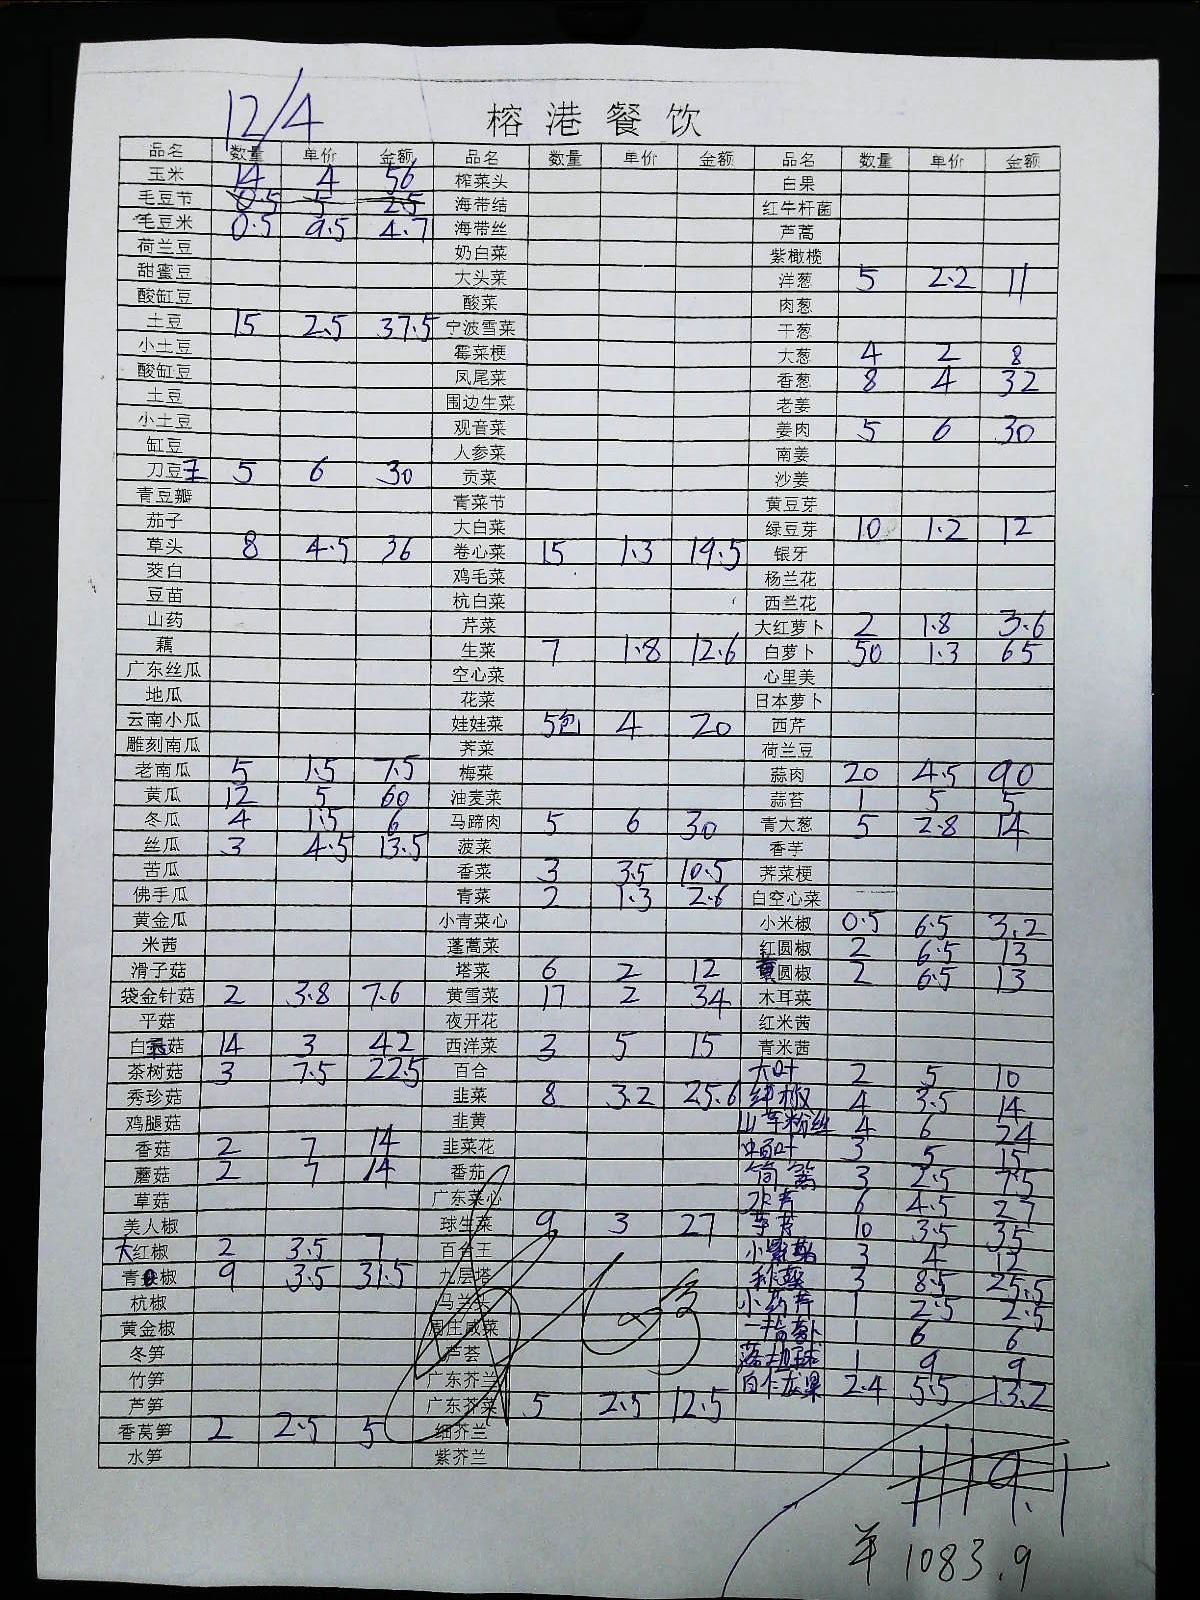 12/4
榕港餐饮
品名 数量 单价 金额 品名 数量 单价 金额 品名 数量 单价 金额
玉米 14 4 56 榨菜头 白果
毛豆节 0.5 5 2.5 海带结 红牛杆菌
毛豆米 0.5 9.5 4.7 海带丝 芦蒿
荷兰豆 奶白菜 紫橄榄
甜蜜豆 大头菜 洋葱 5 2.2 11
酸缸豆 酸菜 肉葱
土豆 15 2.5 37.5 宁波雪菜 干葱
小土豆 霉菜梗 大葱 4 2 8
酸缸豆 凤尾菜 香葱 8 4 32
土豆 围边生菜 老姜
小土豆 观音菜 姜肉 5 6 30
缸豆 人参菜 南姜
刀豆王 5 6 30 贡菜 沙姜
青豆瓣 青菜节 黄豆芽
茄子 大白菜 绿豆芽 10 1.2 12
草头 8 4.5 36 卷心菜 15 1.3 19.5 银牙
茭白 鸡毛菜 杨兰花
豆苗 杭白菜 西兰花
山药 芹菜 大红萝卜 2 1.8 3.6
藕 生菜 7 1.8 12.6 白萝卜 50 1.3 65
广东丝瓜 空心菜 心里美
地瓜 花菜 日本萝卜
云南小瓜 娃娃菜 5包 4 20 西芹
雕刻南瓜 荠菜 荷兰豆
老南瓜 5 1.5 7.5 梅菜 蒜肉 20 4.5 90
黄瓜 12 5 60 油麦菜 蒜苔 1 5 5
冬瓜 4 1.5 6 马蹄肉 5 6 30 青大葱 5 2.8 14
丝瓜 3 4.5 13.5 菠菜 香芋
苦瓜 香菜 3 3.5 10.5 荠菜梗
佛手瓜 青菜 2 1.3 2.6 白空心菜
黄金瓜 小青菜心 小米椒 0.5 6.5 3.2
米茜 蓬蒿菜 红圆椒 2 6.5 13
滑子菇 塔菜 6 2 12 黄圆椒 2 6.5 13
袋金针菇 2 3.8 7.6 黄雪菜 17 2 34 木耳菜
平菇 夜开花 红米茜
白玉菇 14 3 42 西洋菜 3 5 15 青米茜
茶树菇 3 7.5 22.5 百合 大叶 2 5 10
秀珍菇 韭菜 8 3.2 25.6 椒 4 3.5 14
鸡腿菇 韭黄 山芋粉丝 4 6 24
香菇 2 7 14 韭菜花 百叶 3 5 15
蘑菇 2 7 14 番茄 筒篙 3 2.5 7.5
草菇 广东菜心 水芹 6 4.5 27
美人椒 球生菜 9 3 27 芋艿 10 3.5 35
大红椒 2 3.5 7 百合王 小 3 4 12
青椒 9 3.5 31.5 九层塔 3 8.5 25.5
杭椒 马兰头 小 1 2.5 2.5
黄金椒 周庄咸菜 1 6 6
冬笋 芦荟 1 9 9
竹笋 广东芥兰 2.4 5.5 13.2
芦笋 广东芥菜 5 2.5 12.5
香莴笋 2 2.5 5 细芥兰
水笋 紫芥兰
1119.1
羊 1083.9